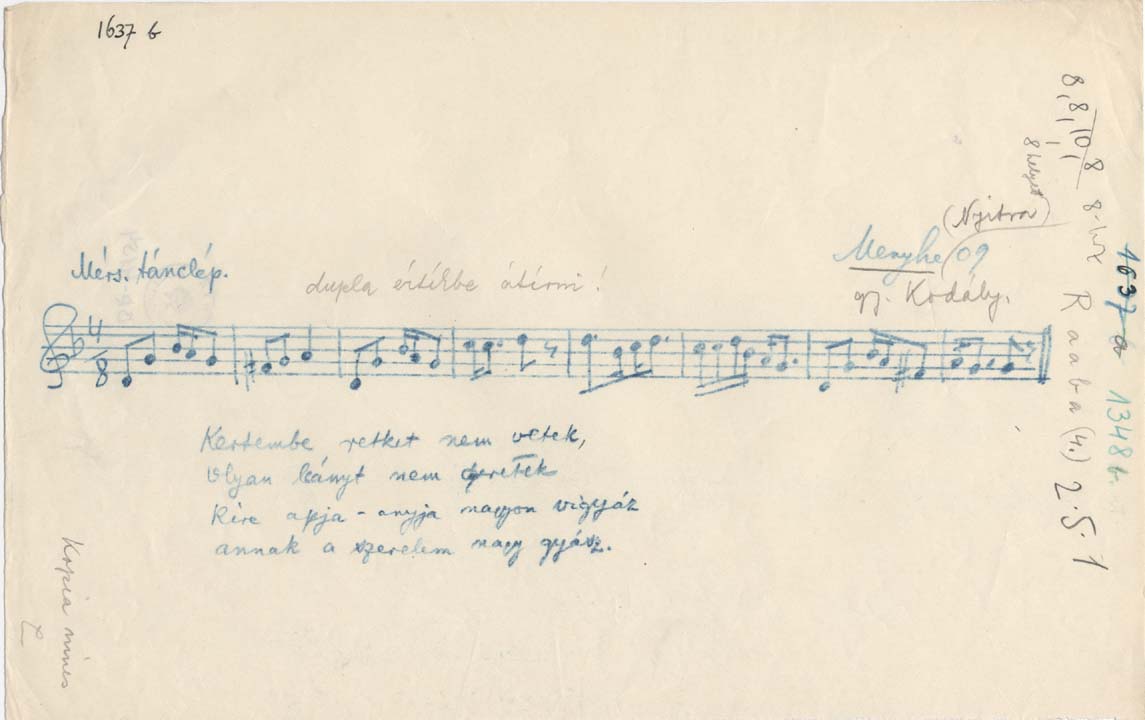 1637 b
Mérs. tánclép.
dupla értékbe átírni!
(Nyitra)
Menyhe 09
gy. Kodály.
4
8
Kertembe retket nem vetek,
olyan leányt nem szeretek
Kire apja - anyja nagyon vigyáz
annak a szerelem nagy gyász.
Kopia nincs
8, 8, 10, 8
8 helyett
Raaba (4.) 2.5.1
1637
1348 b.